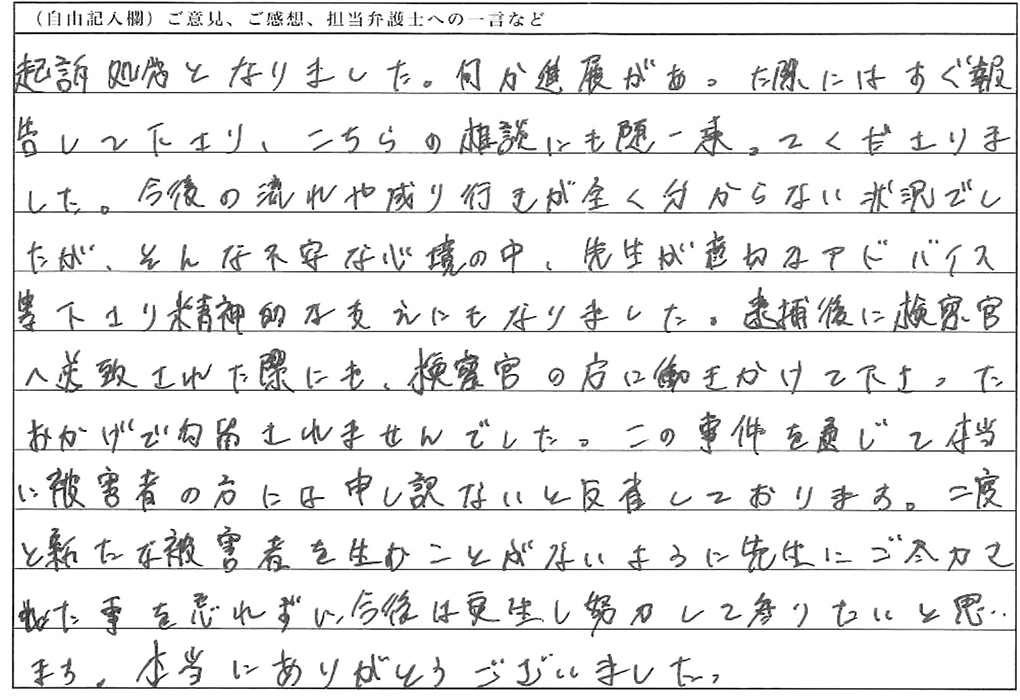 （自由記入欄）ご意見、ご感想、担当弁護士への一言など
起訴処分となりました。何か進展があった際にはすぐ報
告して下さり、こちらの相談にも随一乗ってくださりま
した。今後の流れや成り行きが全く分からない状況でし
たが、そんな不安な心境の中、先生が適切なアドバイス
等下さり精神的な支えにもなりました。逮捕後に検察官
へ送致された際にも、検察官の方に働きかけて下さった
おかげで勾留されませんでした。この事件を通じて本当
に被害者の方には申し訳ないと反省しております。二度
と新たな被害者を生むことがないように先生にご尽力さ
れた事を忘れずに、今後は更生し努力して参りたいと思い
ます。本当にありがとうございました。